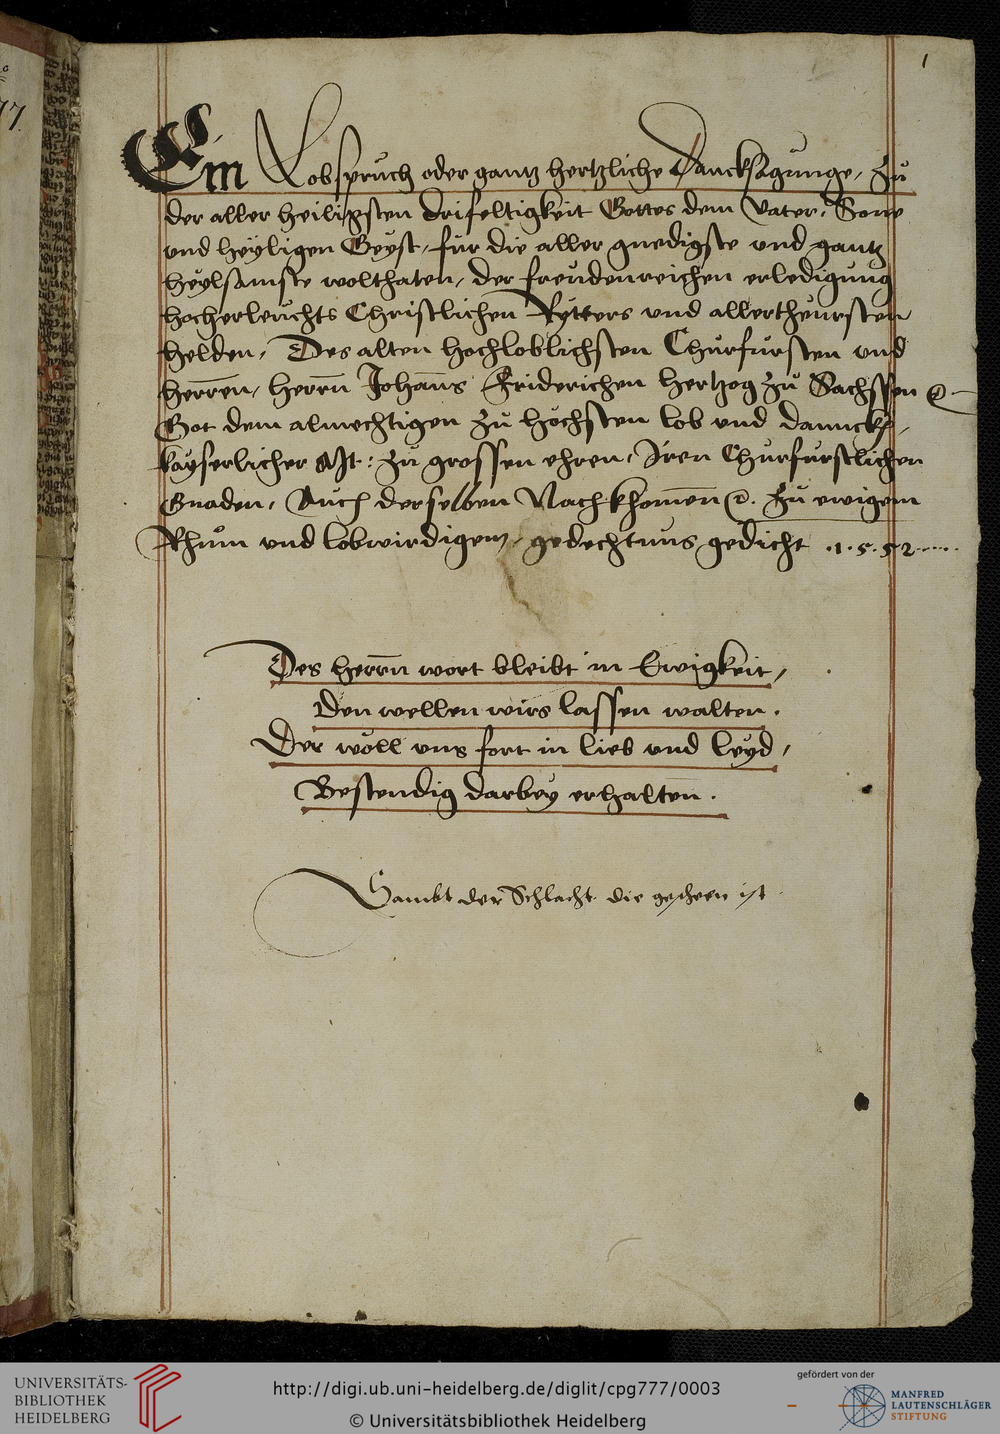 1
Ein Lobspruch oder gantz hertzliche Dancksagunge, zu
der aller heiligsten drifeltigkeit Gottes dem Vater, Sone
vnd heyligen Geyst, für die aller gnedigste vnd gantz
heylsamste wolthaten, der freudenreichen erledigung
hocherleuchts Christlichen Rytters vnd allertheursten
helden, Des alten hochloblichsten Churfursten vnd
herren, herrn Johans Friderichen hertzog zu Sachssen
Got dem almechtigen zu höchsten lob vnd danncks,
kayserlicher Mt: zu grossen ehren, Iren Churfurstlichen
Gnaden, Auch derselben Nachkhomen zu ewigem
Rhum vnd lobwirdigem gedechtnus gedicht .1.5.52.....
Des herrn wort bleibt in Ewigkeit,
Den wellen wirs lassen walten.
Der wöll vns fort in lieb vnd leyd,
Bestendig darbey erhalten.
Sambt der Schlacht die gescheen ist
77.
UNIVERSITÄTS-
BIBLIOTHEK
HEIDELBERG
http://digi.ub.uni-heidelberg.de/diglit/cpg777/0003
© Universitätsbibliothek Heidelberg
gefördert von der
MANFRED
LAUTENSCHLÄGER
STIFTUNG